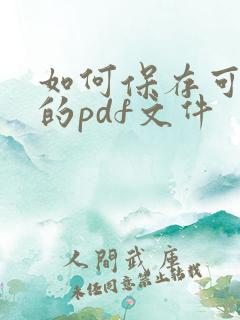 如何保存可
的pdf文件
人間武库
未经同意禁止转载